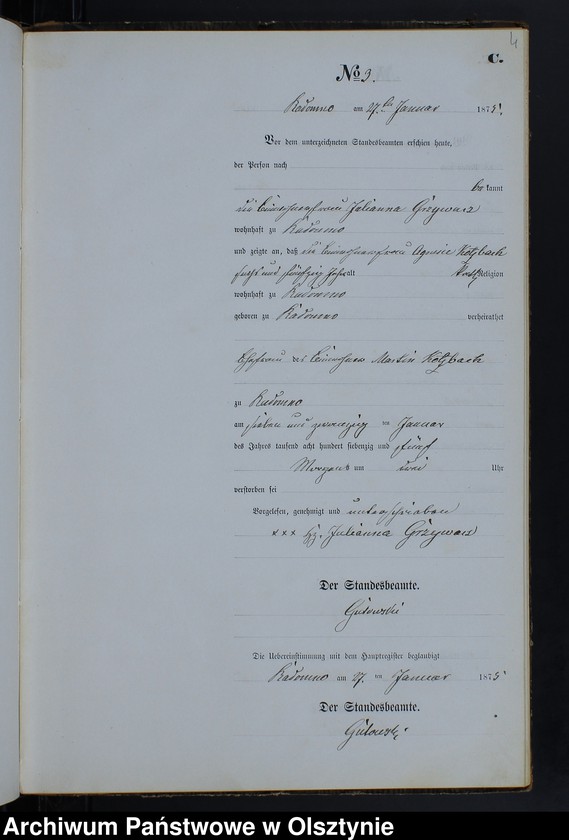 4
C.
No 3.
Radomno am 27ten Januar 1875.
Vor dem unterzeichneten Standesbeamten erschien heute,
der Person nach
bekannt
die Einwohnerfrau Julianna Grzywacz
wohnhaft zu Radomno
und zeigte an, daß die Einwohnerfrau Agnisie Kotzbach
sechs und fünfzig Jahr alt Kath. Religion
wohnhaft zu Radomno
geboren zu Radomno verheirathet
Ehefrau des Einwohner Martin Kotzbach
zu Radomno
am sieben und zwanzig ten Januar
des Jahres tausend acht hundert siebenzig und fünf
Morgens um Uhr
verstorben sei
Vorgelesen, genehmigt und unterschrieben
××× Hz. Julianna Grzywacz
Der Standesbeamte.
Gutowski
Die Uebereinstimmung mit dem Hauptregister beglaubigt
Radomno am 27. ten Januar 1875
Der Standesbeamte.
Gutowski
Archiwum Państwowe w Olsztynie